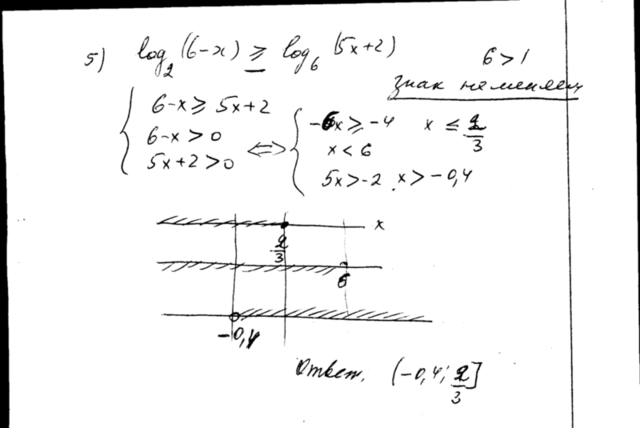 5) log₂(6-x) ≥ log₆(5x+2) 6>1
знак не меняем
6-x ≥ 5x+2
6-x>0
5x+2>0
⇔
-6x ≥ -4 x ≤ 2/3
x < 6
5x>-2 x>-0,4
x
2/3
6
-0,4
Ответ. (-0,4; 2/3]